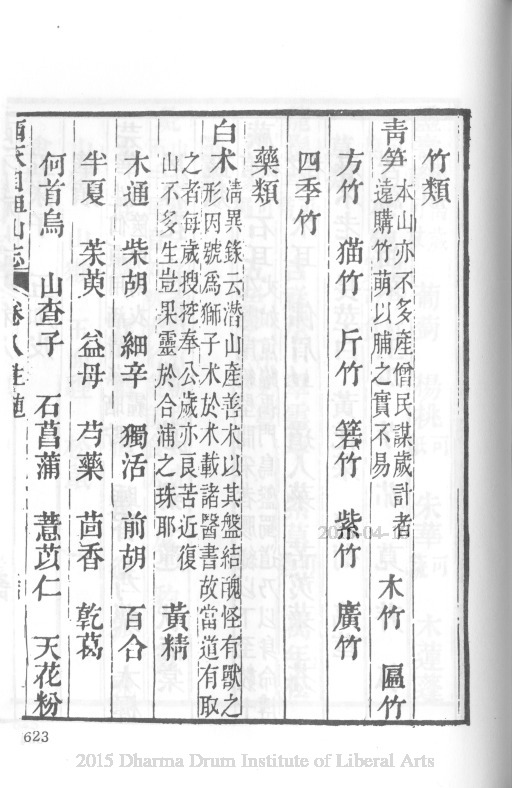 竹類
青笋本山亦不多産僧民謀歲計者遠購竹萌以脯之實不易 木竹 匾竹
方竹 猫竹 斤竹 箬竹 紫竹 廣竹
四季竹
藥類
白朮清異錄云潛山產善朮以其盤結醜怪有獸之形因號爲獅子朮於朮載諸醫書故當道有取
之者每歲搜挖奉公歲亦良苦近復山不多生豈果靈於合浦之珠耶 黃精
木通 柴胡 細辛 獨活 前胡 百合
半夏 茱萸 益母 芍藥 茴香 乾葛
何首烏 山查子 石菖蒲 薏苡仁 天花粉
西天目祖山志 卷八
623
2015 Dharma Drum Institute of Liberal Arts